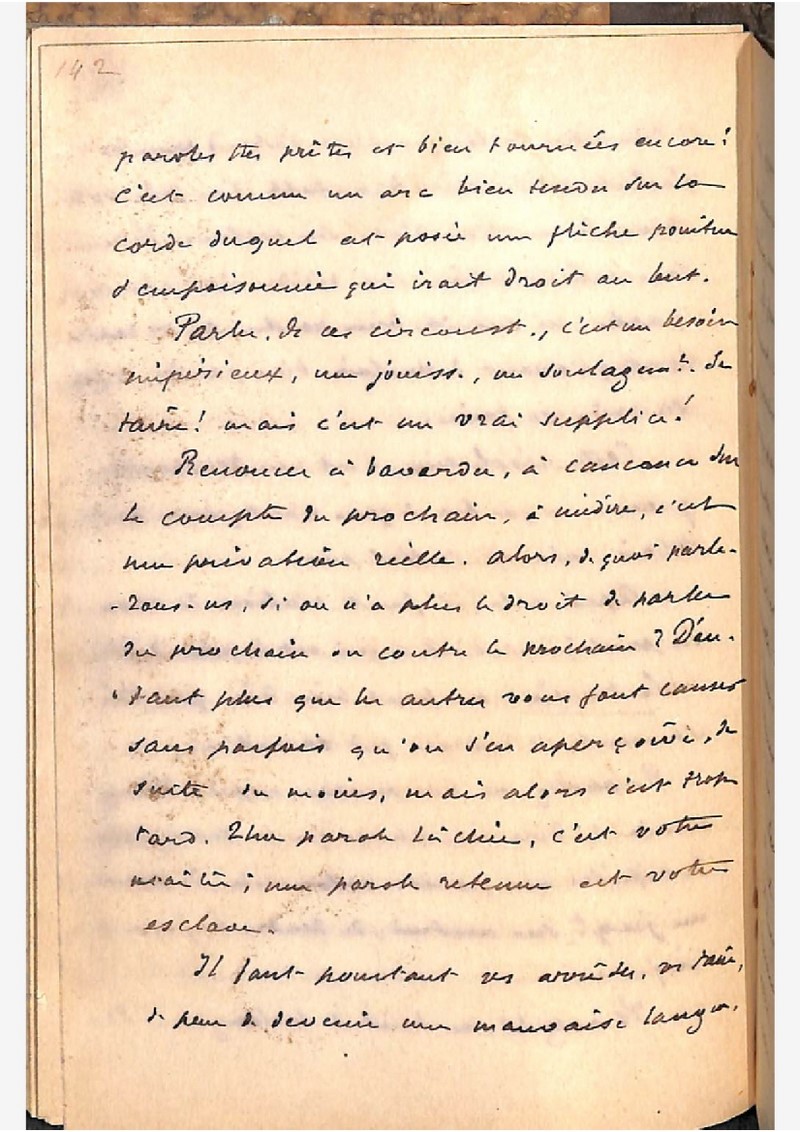 142
paroles ttes prêtes et bien tournées encore!
C'est comme un arc bien tendu sur la
corde duquel est posée une flèche pointue
empoisonnée qui irait droit au but.
Parler de ces circonst., c'est un besoin
impérieux, une jouiss., un soulagemt. Se
taire! mais c'est un vrai supplice!
Renoncer à bavarder, à cancaner sur
le compte du prochain, à médire, c'est
une privation réelle. Alors, de quoi parle-
-rons-ns, si on n'a plus le droit de parler
du prochain ou contre le prochain? D'au-
-tant plus que les autres vous font causer
sans parfois qu'on s'en aperçoive, de
suite du moins, mais alors c'est trop
tard. Une parole lâchée, c'est votre
maître; une parole retenue est votre
esclave.
Il faut pourtant vs arrêter, vs taire,
de peur de devenir une mauvaise langue.